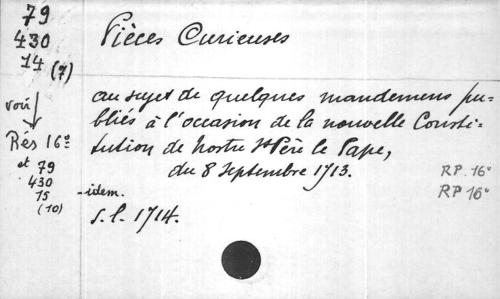 79
430
14 (7)
voir
Rés 16º
et 79
430
15 - idem.
(10)
Pièces Curieuses
au sujet de quelques mandemens pu-
bliés à l'occasion de la nouvelle Consti-
tution de Nostre St Père le Pape,
du 8 Septembre 1713.
S. l. 1714.
RP. 16º
RP 16º